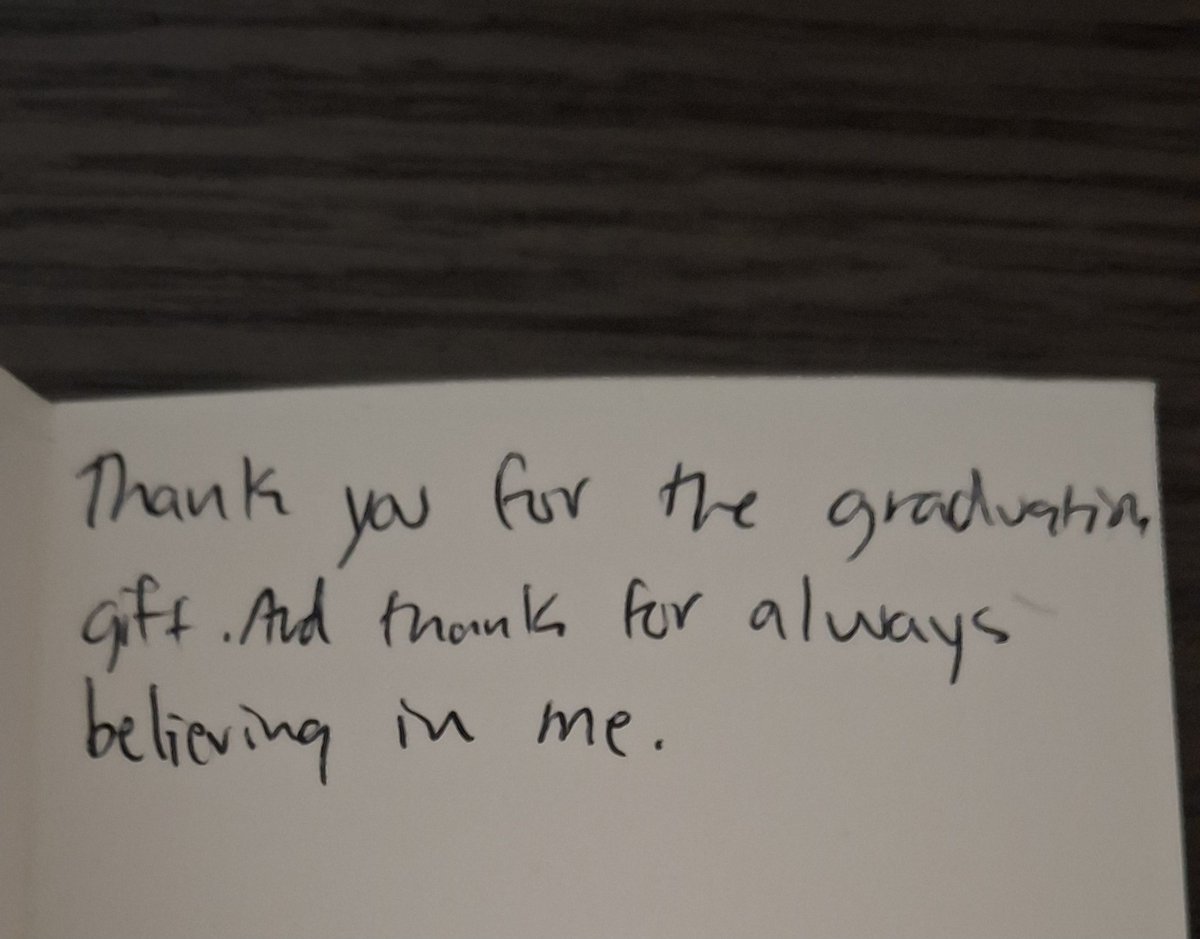 Thank you for the graduation
gift. And thank for always
believing in me.